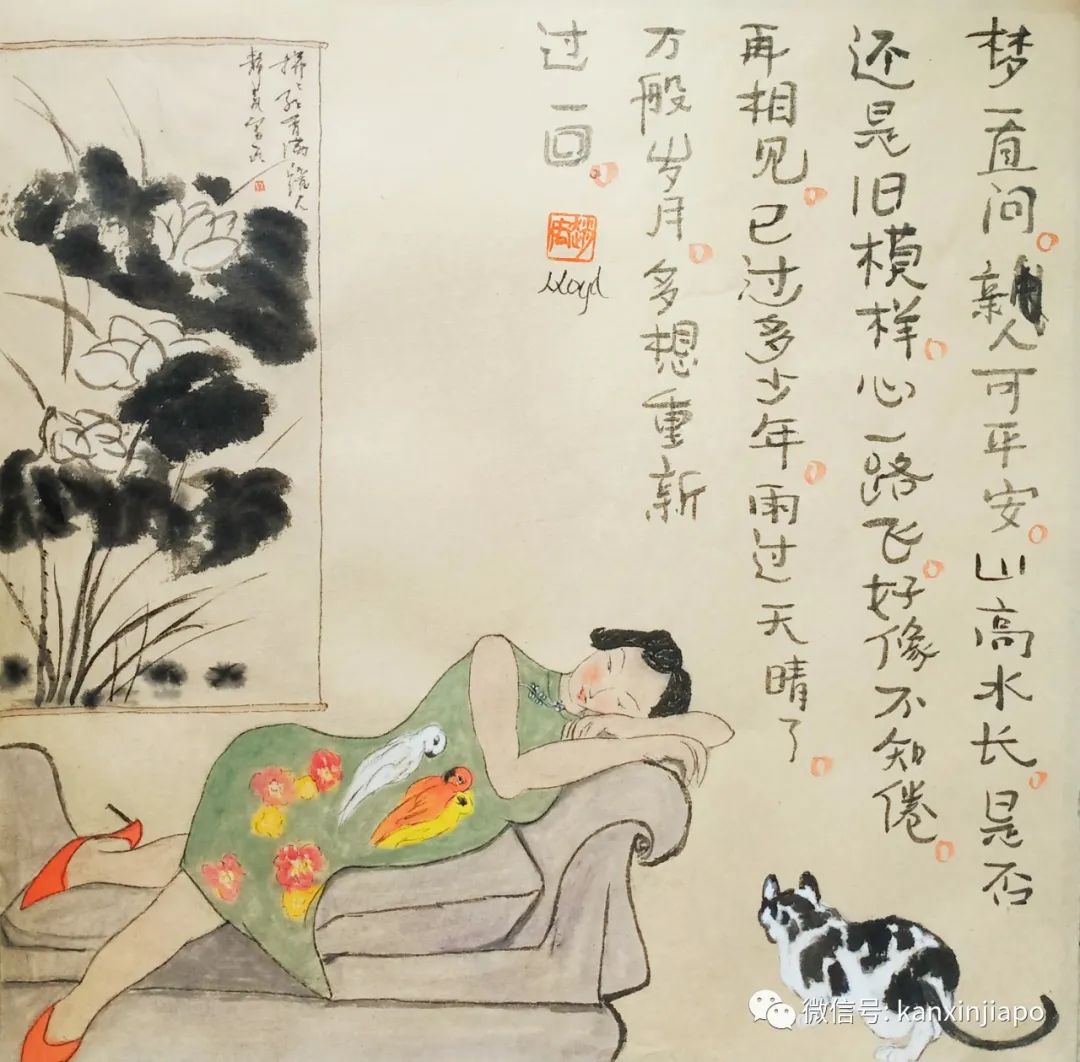 梦一直问。亲人可平安。山高水长。是否
还是旧模样。心一路飞。好像不知倦。
再相见。已过多少年。雨过天晴了。
万般岁月。多想重新
过一回。
Lloyd
微信号: kanxinjiapo